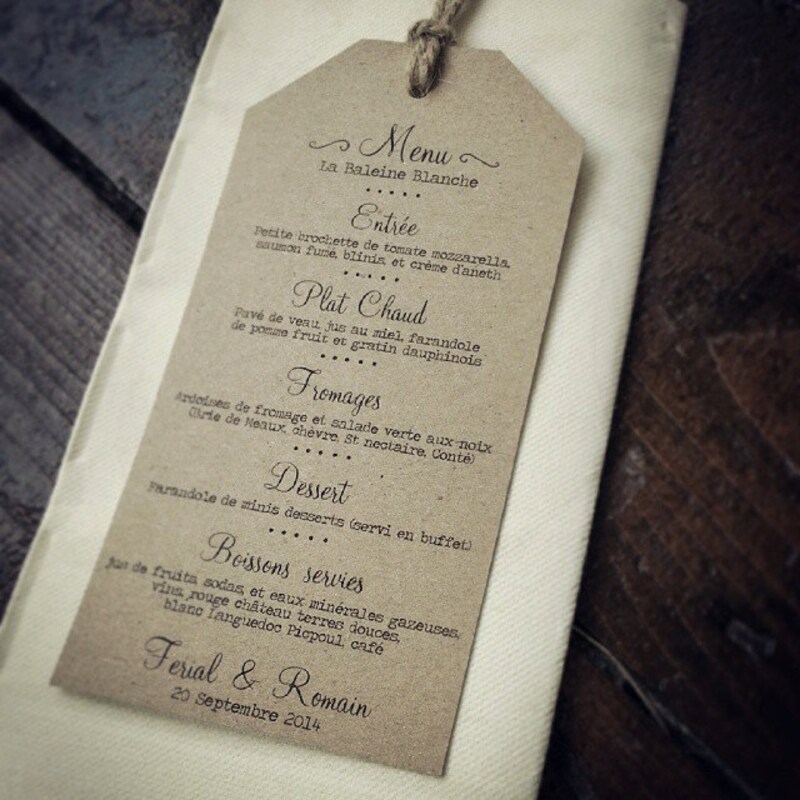 Menu
La Baleine Blanche
Entrée
Petite brochette de tomate mozzarella,
saumon fumé, blinis, et crème d'aneth
Plat Chaud
Pavé de veau, jus au miel, farandole
de pomme fruit et gratin dauphinois
Fromages
Ardoises de fromage et salade verte aux noix
(Brie de Meaux, chèvre, St nectaire, Conté)
Dessert
Farandole de minis desserts (servi en buffet)
Boissons servies
jus de fruits, sodas, et eaux minérales gazeuses,
vins, rouge château terres douces,
blanc Languedoc Picpoul, café
Ferial & Romain
20 Septembre 2014